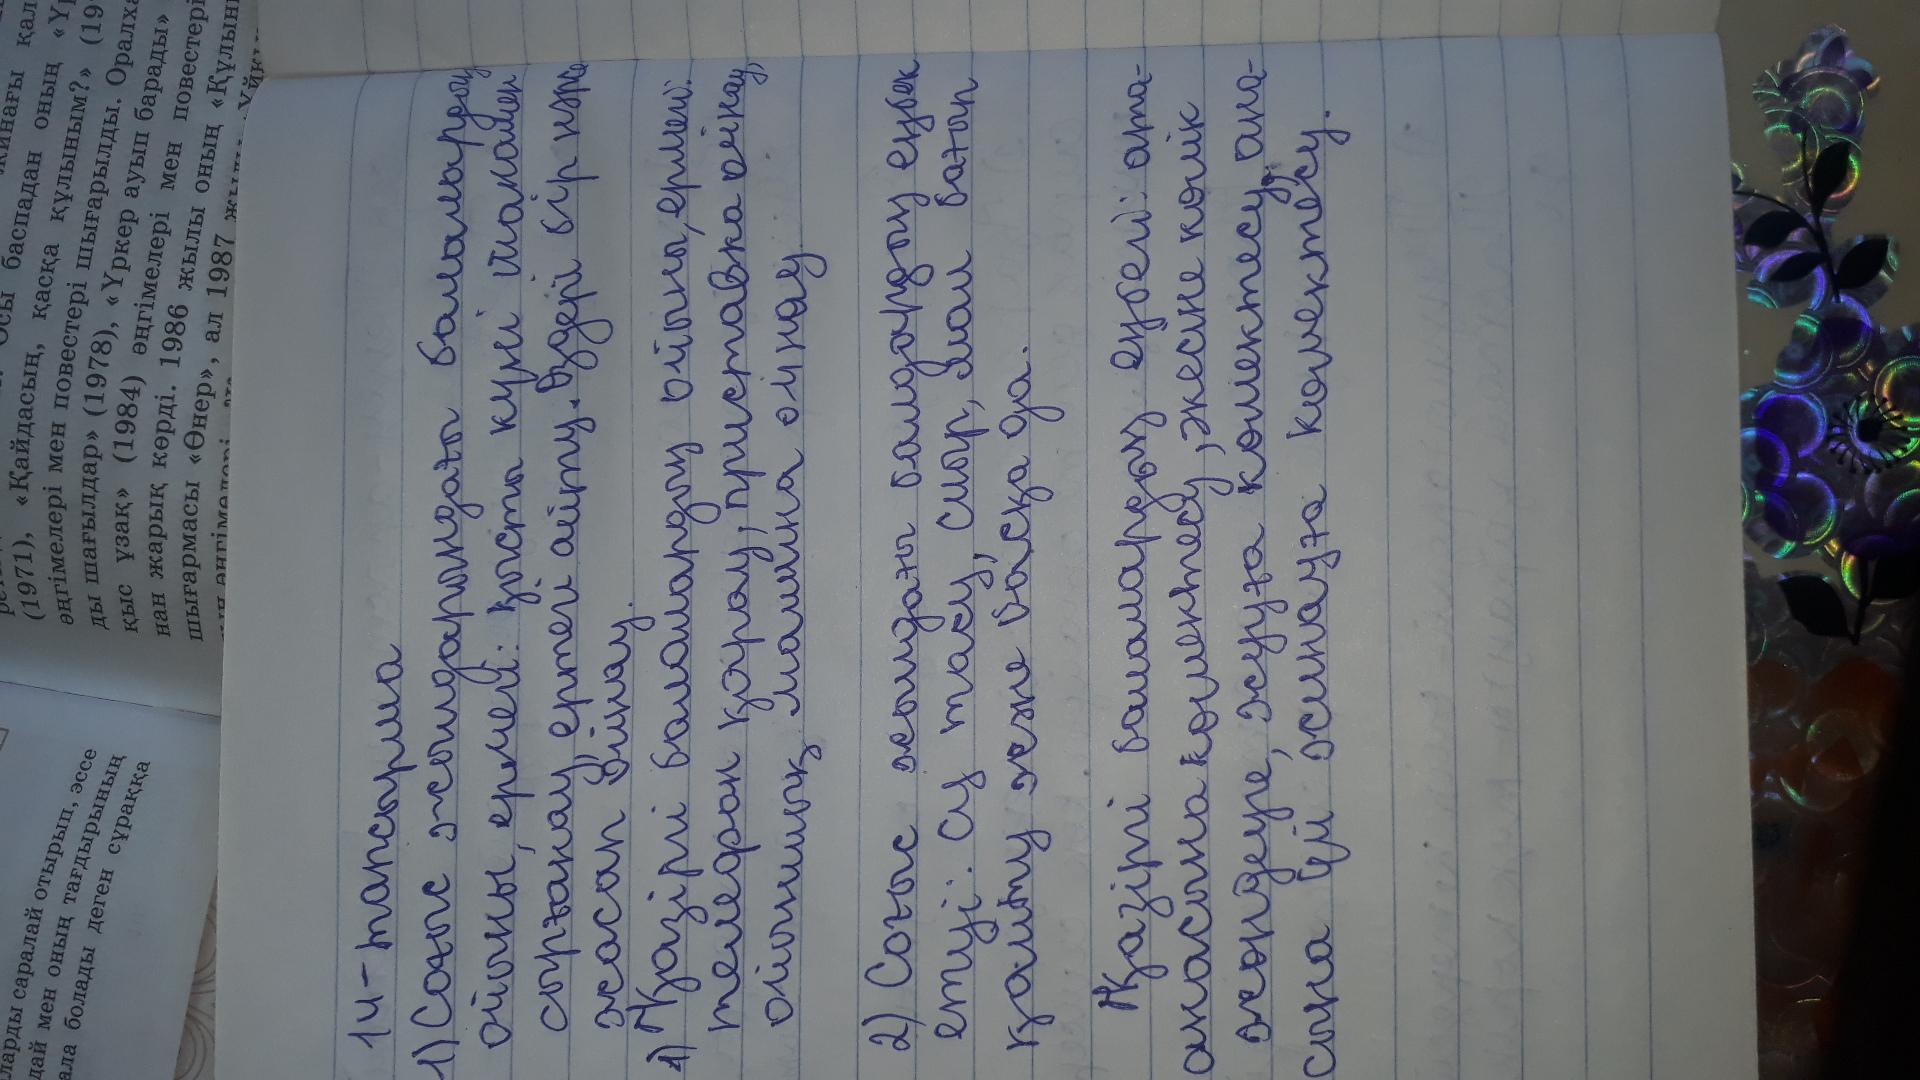 (1971), «Қайдасың, қасқа құлыным?» (19
әңгімелері мен повестері шығарылды. Оралха
ды шағылдар» (1978), «Үркер ауып барады»
қыс ұзақ» (1984) әңгімелері мен повестері
нан жарық көрді. 1986 жылы оның «Құлын
шығармасы «Өнер», ал 1987 жылы
ларды саралай отырып, эссе
дай мен оның тағдырының
ала болады деген сұраққа
14-тапсырма
1) Соғыс жолдарондағы балалардың
ойыны, ермегі: қысты күнгі
сырғанау, ертегі айту. Өздері бір нәрсе
жасап ойнау.
1) Қазіргі балалардың ойыны, ермегі:
телефон қарау, приставка ойнау,
ойыншық машина ойнау.
2) Соғыс жылдағы балдардың еңбек
етуі: су тасу, сиыр, мал бағып
қалыту және басқа да.
Қазіргі балалардың еңбегі: ата-
анасына көлектесу, әкесіне көлік
жөндеуге, жууға көмектесу, ана-
сына үй жинауға көлектесу.